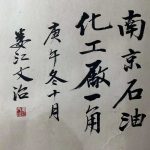 南京石油
化工廠一角
庚午冬十月
婁江文治